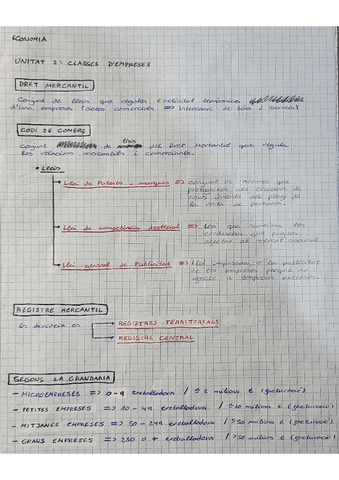 ECONOMIA
UNITAT 2: CLASSES D'EMPRESES
DRET MERCANTIL
Conjunt de lleis que regulen l'activitat econòmica
d'una empresa (actes comercials => Intercanvi de béns i serveis)
CODI DE COMERÇ
Conjunt de lleis del Dret Mercantil que regula
les relacions mercantils i comercials.
• LLEIS
Llei de Patents - marques => conjunt de normes que
protegeixen als creadors de
nous invents del plagi de
la resta de persones.
Llei de competència deslleial => Llei que
conductes que puguen
afectar al mercat nacional.
Llei general de Publicitat => Llei la publicitat
de les empreses perquè no
afecte a empreses
REGISTRE MERCANTIL
Es divideix en REGISTRES TERRITORIALS
REGISTRE CENTRAL
SEGONS LA GRANDÀRIA
- MICROEMPRESES => 0-9 treballadors / ≤ 2 milions € (facturació)
- PETITES EMPRESES => 10-49 treballadors / ≤ 10 milions € (facturació)
- MITJANES EMPRESES => 50-249 treballadors / ≤ 50 milions € (facturació)
- GRANS EMPRESES => 250 o + treballadors / > 50 milions € (facturació)